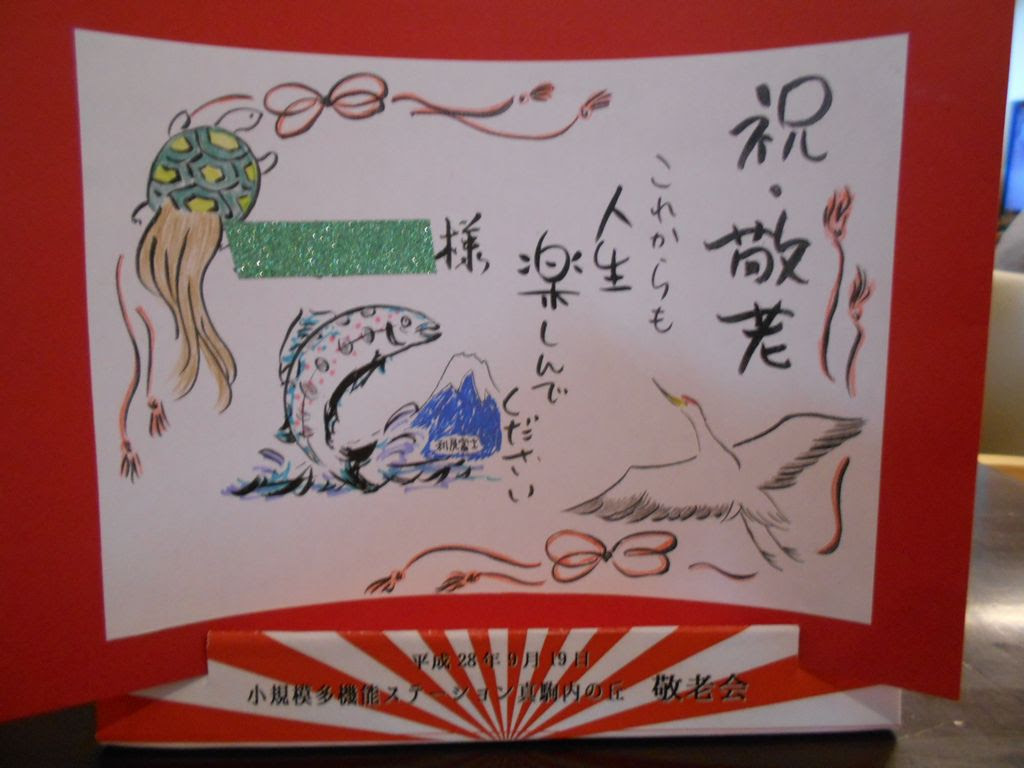 祝・敬老
これからも
人生
楽しんで
ください
様
利尻富士
平成28年9月19日
小規模多機能ステーション真駒内の丘 敬老会